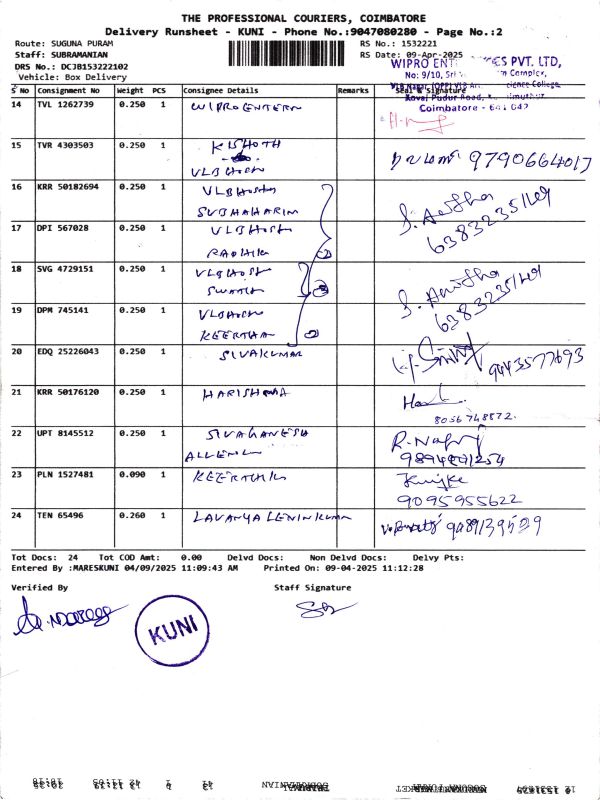 THE PROFESSIONAL COURIERS, COIMBATORE
Delivery Runsheet - KUNI - Phone No.:9047080280 - Page No.:2
Route: SUGUNA PURAM
Staff: SUBRAMANIAN
DRS No.: DCJB153222102
Vehicle: Box Delivery
RS No.: 1532221
RS Date: 09-Apr-2025
WIPRO ENT ES PVT. LTD,
No: 9/10, Sri Complex,
Kovai Pudur Road,
Coimbatore - 641 042
S No Consignment No Weight PCS Consignee Details Remarks Seal & Signature
14 TVL 1262739 0.250 1 WIPRO ENTERN
15 TVR 4303503 0.250 1 KISHOTH
VLB HOSTH 9790664017
16 KRR 50182694 0.250 1 VLB HOSTH
SUBHAHARINI S. Anitha
6383235169
17 DPI 567028 0.250 1 VLB HOSTH
RADHIKA
18 SVG 4729151 0.250 1 VLB HOST
SWATH S. Anitha
6383235169
19 DPM 745141 0.250 1 VLB HOSTH
KEERTHAN
20 EDQ 25226043 0.250 1 SIVAKUMAR 9443577693
21 KRR 50176120 0.250 1 HARISHMA
8056748872.
22 UPT 8145512 0.250 1 SIVAGANESH
23 PLN 1527481 0.090 1 KEERTHIK
9095955622
24 TEN 65496 0.260 1 LAVANYA LENIN KUMAR
Tot Docs: 24 Tot COD Amt: 0.00 Delvd Docs: Non Delvd Docs: Delvy Pts:
Entered By :MARESKUNI 04/09/2025 11:09:43 AM Printed On: 09-04-2025 11:12:28
Verified By Staff Signature
KUNI